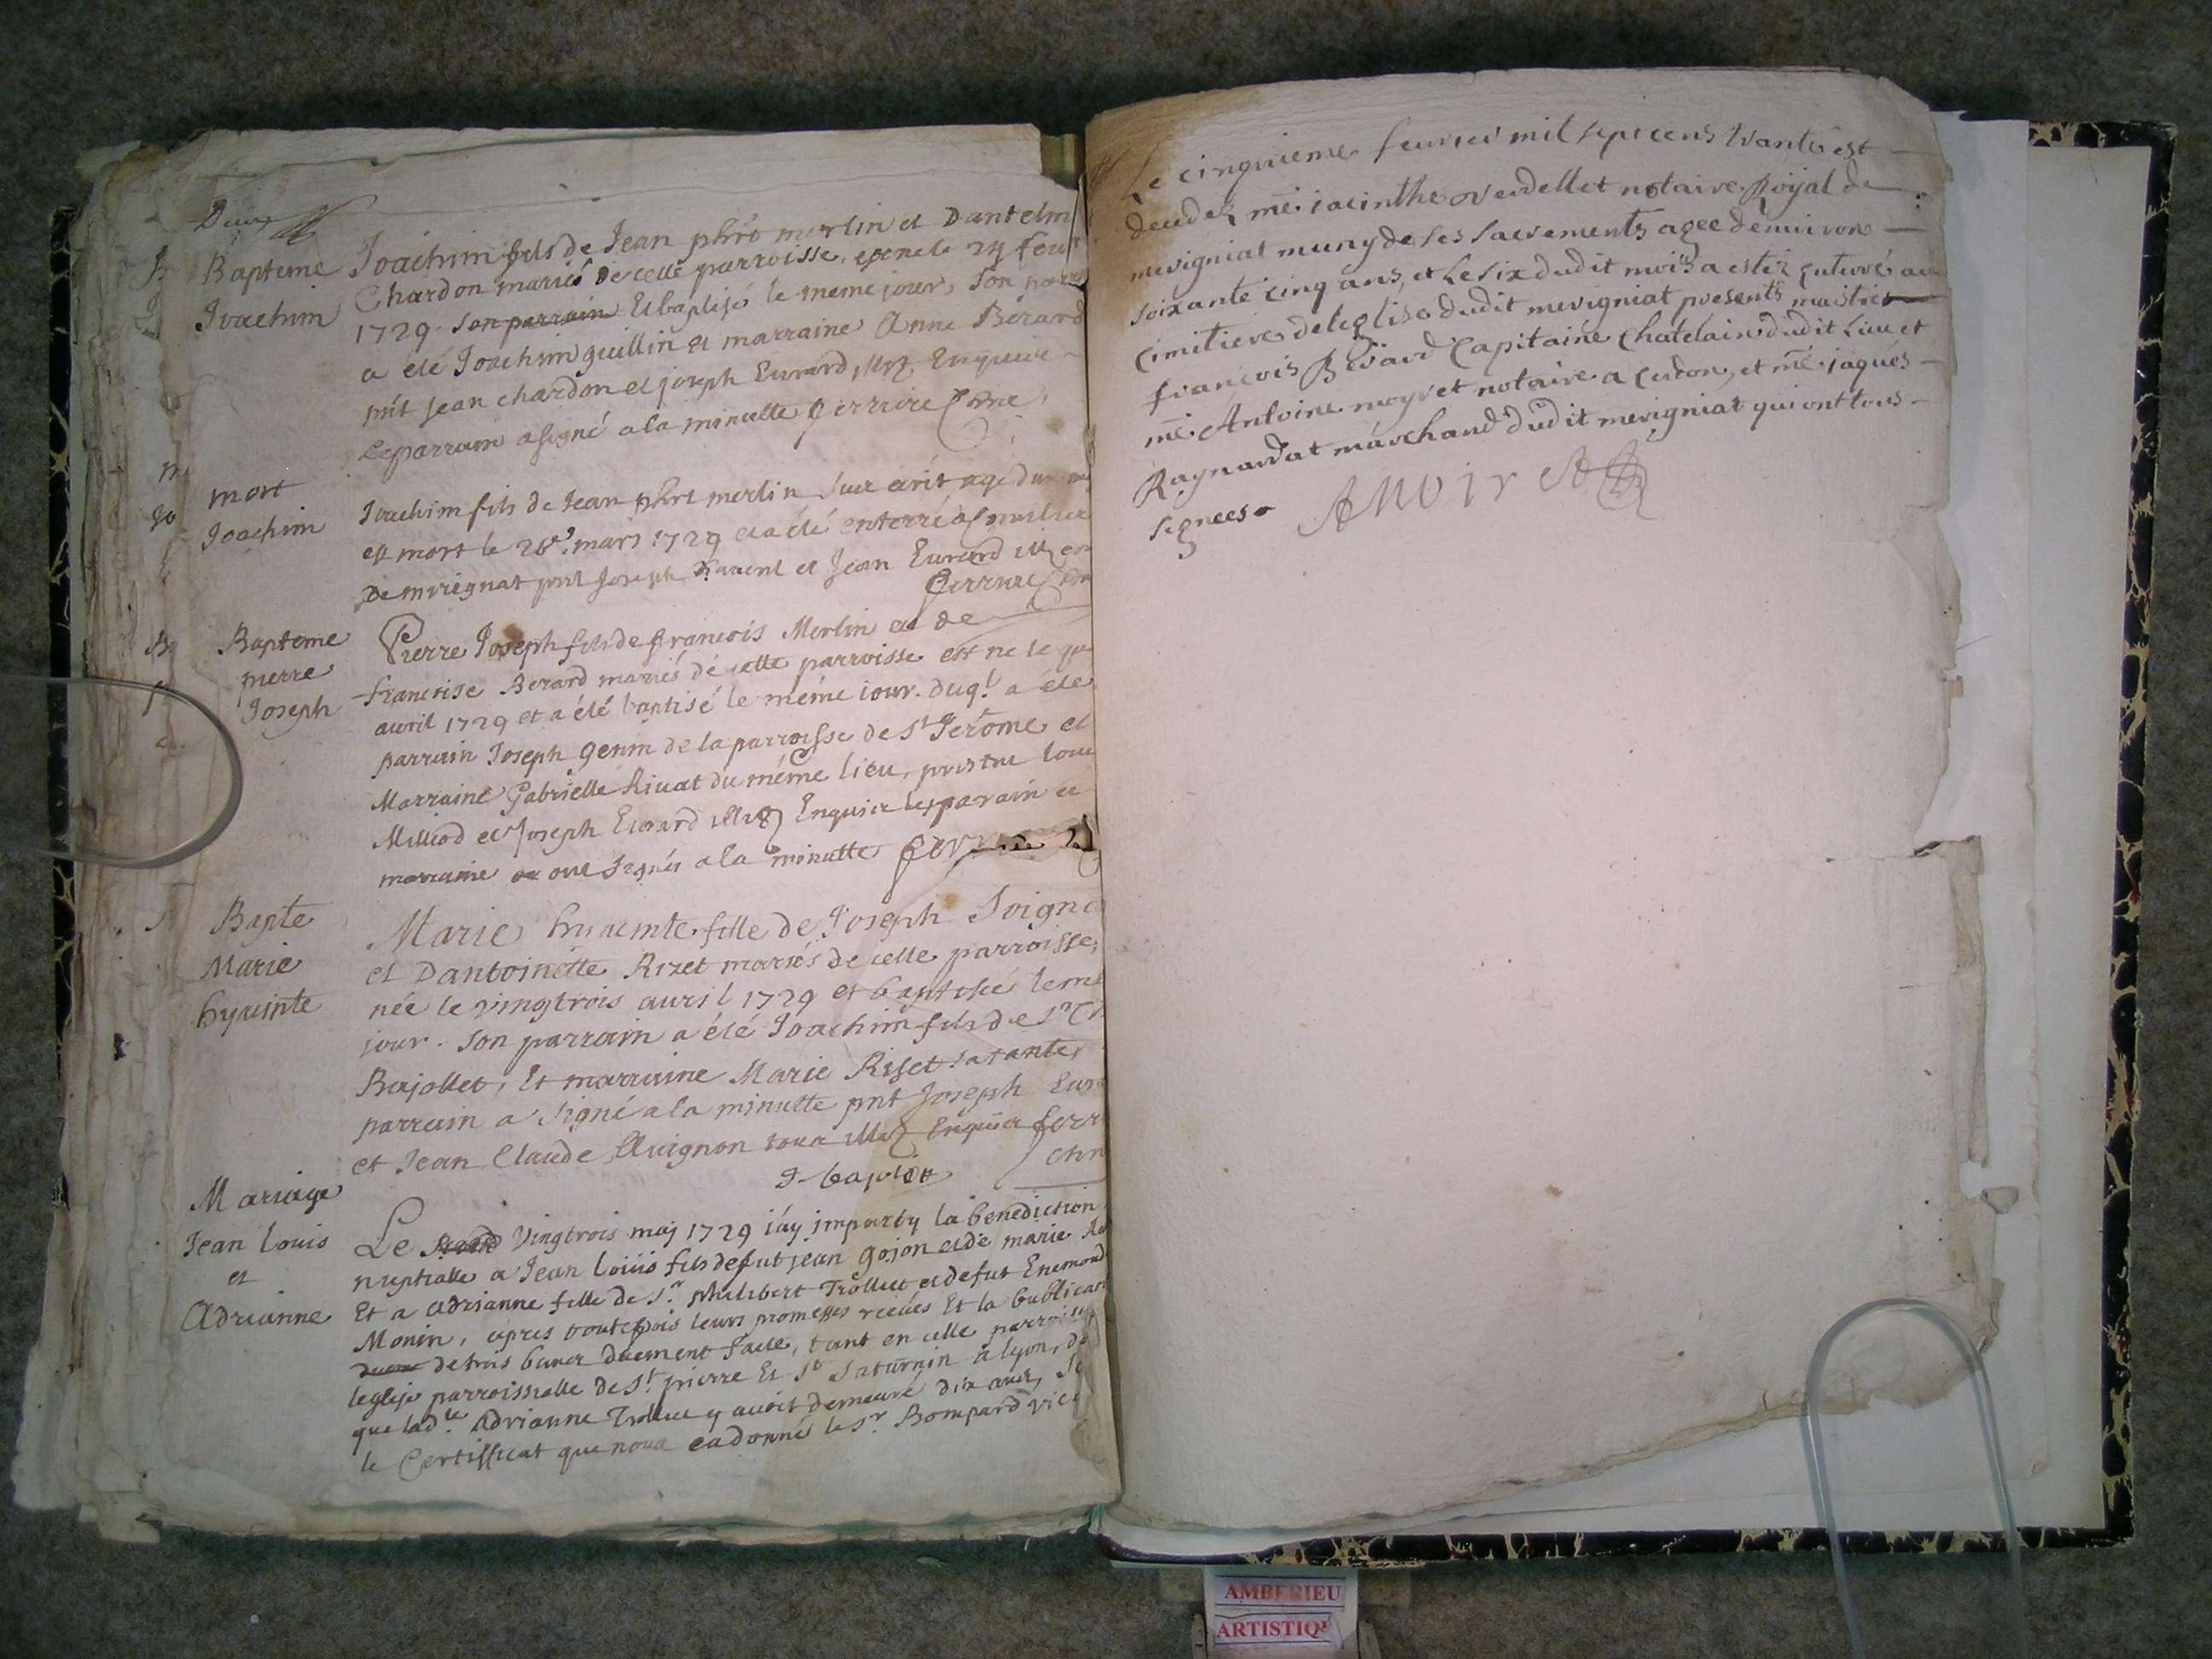 Deux
Bapteme
Joachim
Joachim fils de Jean phrt merlin et Dantelm
Chardon mariés de celle parroisse, est né le 24 feur
1729. son parrain Et baptisé le meme jour, son parr
a elé Joachim guillin et marraine Anne Berard
pnt Jean chardon et joseph Eurard illz Enquis
Le parrain a signé a la minutte ferriere
mort
Joachim
Joachim fils de Jean phrt merlin sus ecrit agé dun
est mort le 26e mars 1729 et a été enterré au
de merignat pnt Joseph et Jean Eurard illz
Bapteme
pierre
Joseph
Pierre Joseph fils de francois Merlin et de
francoise Berard mariés de celle parroisse est ne le
auril 1729 et a été baptisé le méme iour. duql a éte
parrain Joseph genin de la parroisse de St Jerôme et
Marraine Gabrielle Riuat du méme lieu,
Milliod et Joseph Eurard illz Enquis le parain et
marraine ont signés a la minutte
Bapte
Marie
hyacinte
Marie hyacinte fille de Joseph Soigna
et Dantoinétte Rizet mariés de celle parroisse,
née le vingtrois auril 1729 et baptisée leme
jour. Son parrain a été Joachim fils de Sr
Bajollet, Et marraine Marie Riset sa tante,
parrain a signé a la minutte pnt Joseph Eur
et Jean Claude Auignon tous illz Enquis ferr
J bajolet
Mariage
Jean Louis
et
Adrianne
Le Vingtrois maj 1729 i'ay imparty la benediction
nuptialle a Jean Loüis fils de fut jean gojon et de marie
Et a Adrianne fille de Sr. philibert Trolliet et de fut Enemond
Monin, apres toutefois leurs promesses receües Et la bublicat
de trois bancs duement faite, tant en celle parroisse
leglise parroissialle de St. pierre Et St Saturnin a lyon, de
que lad.te Adrianne y auoit demeuré dix ans,
le Certifficat que nous ea donné le Sr. Bompard vic
Le cinquieme feurier mil sept cens trante est
decedez me iacinthe verdellet notaire Royal de
merigniat muny de ses sacrements agee denuiron
soixante cinq ans, et le six dudit mois a estez enterré au
cimitiere de leglise dudit merigniat presents maistre
françois Besard Capitaine Chatelain dudit Lieu et
me. Antoine moyret notaire a Cerdon, et me. iaques
Ragnardat marchand dudit merigniat qui ont tous
signees.
AMoiret
AMBERIEU
ARTISTIQ